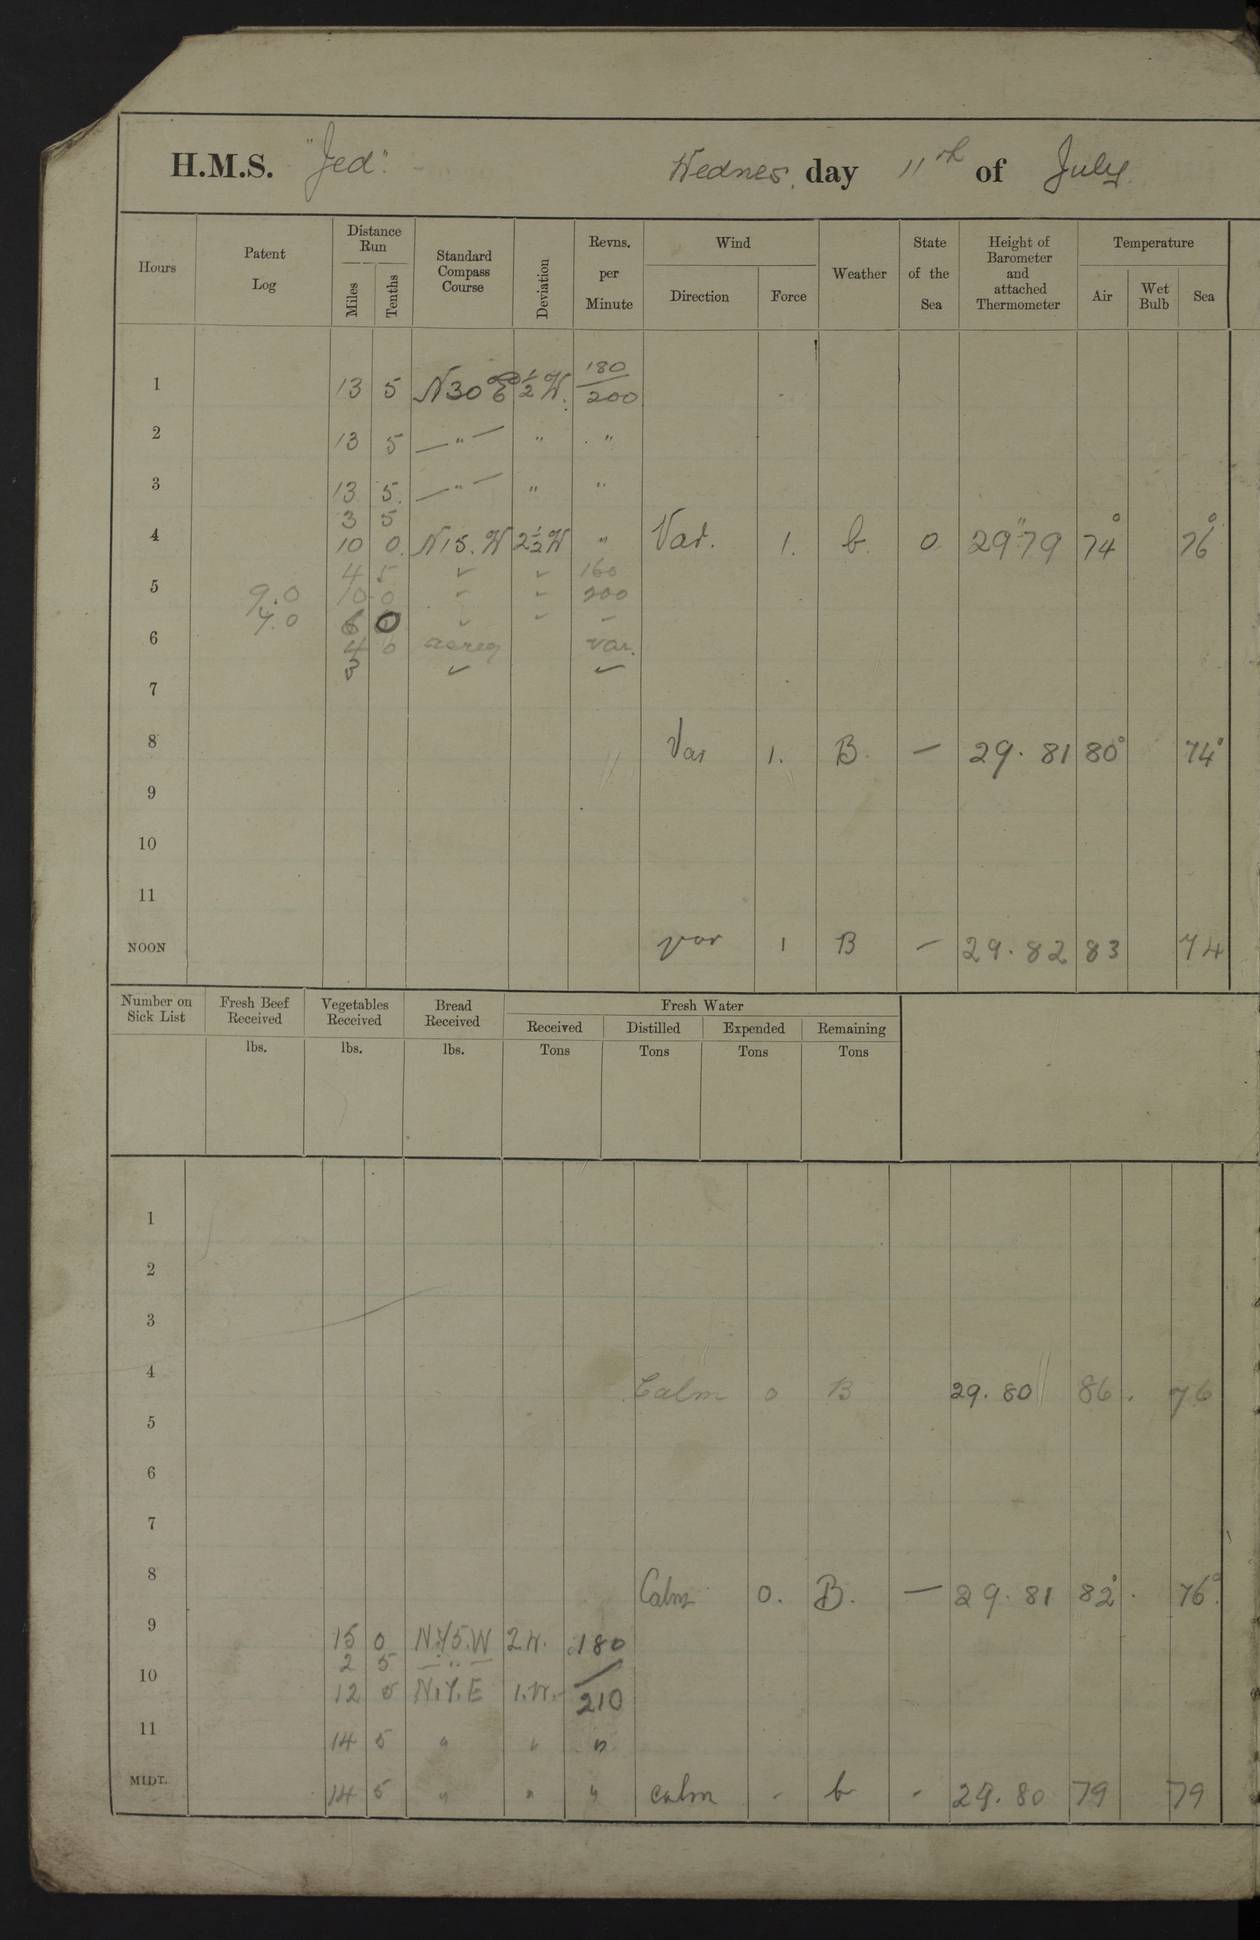 H.M.S. "Jed". Wednes. day 11th of July.
Hours
Patent Log
Distance Run
Miles
Tenths
Standard Compass Course
Deviation
Revns. per Minute
Wind
Direction
Force
Weather
State of the Sea
Height of Barometer and attached Thermometer
Temperature
Air
Wet Bulb
Sea
1 13 5 N30 E ½ W. 180/200
2 13 5 —"— " "
3 13 5 —"— " "
3 5
4 10 0 N15.W 2½W " Var. 1. b. 0 29"79 74° 76°
4 5 160
5 9.0 10 0 200
7.0 6 0
6 4 var.
7
8 Var 1. B. — 29.81 80° 74°
9
10
11
NOON var 1 B — 29.82 83 74
Number on Sick List
Fresh Beef Received
Vegetables Received
Bread Received
Fresh Water
Received
Distilled
Expended
Remaining
lbs. lbs. lbs. Tons Tons Tons Tons
1
2
3
4 Calm 0 B 29.80 86. 76
5
6
7
8 Calm 0. B. — 29.81 82°. 76°.
9 15 0 2W. 180
2 5 —"—
10 12 5 1.W. 210
11 14 5 " " "
MIDT. 14 5 " " " calm - b - 29.80 79 79